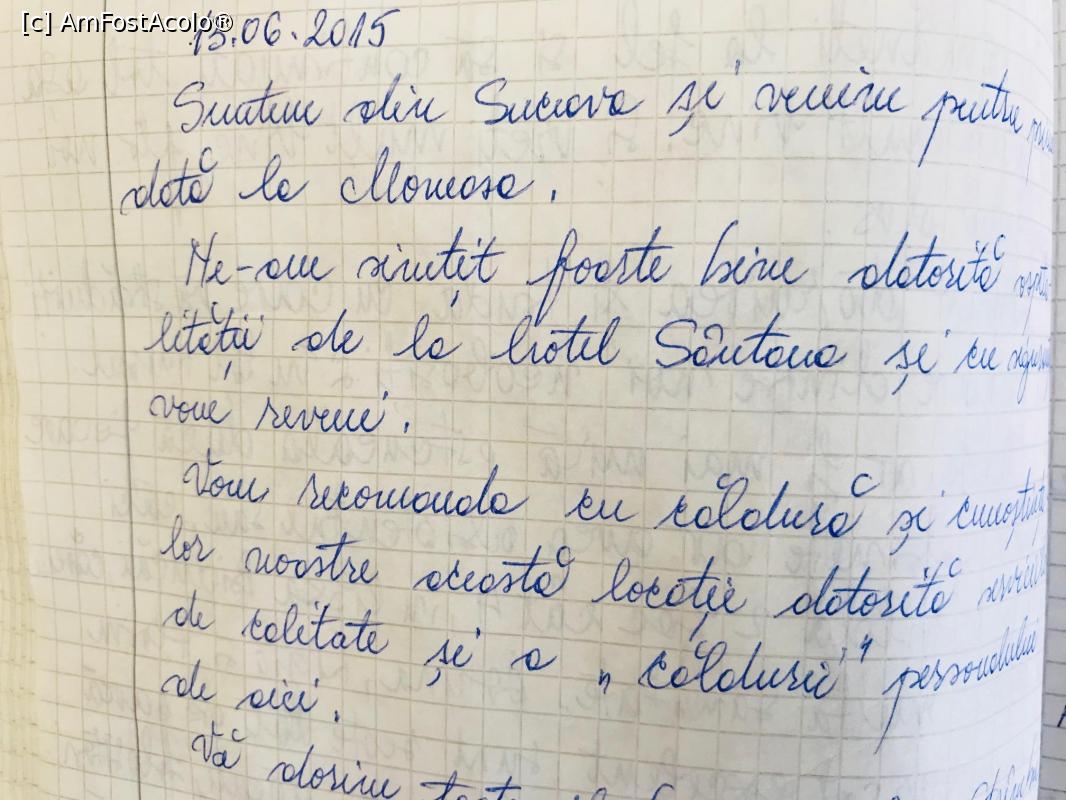 [c] AmFostAcolo®
13.06.2015
Suntem din Suceava și venim pentru
dată la Mamaia.
Ne-am simțit foarte bine datorită
lității de la hotel Sântana și cu
vom reveni.
Vom recomanda cu căldură și
lor noastre această locație datorită
de calitate și a „căldurii" personalului
de aici.
Vă dorim